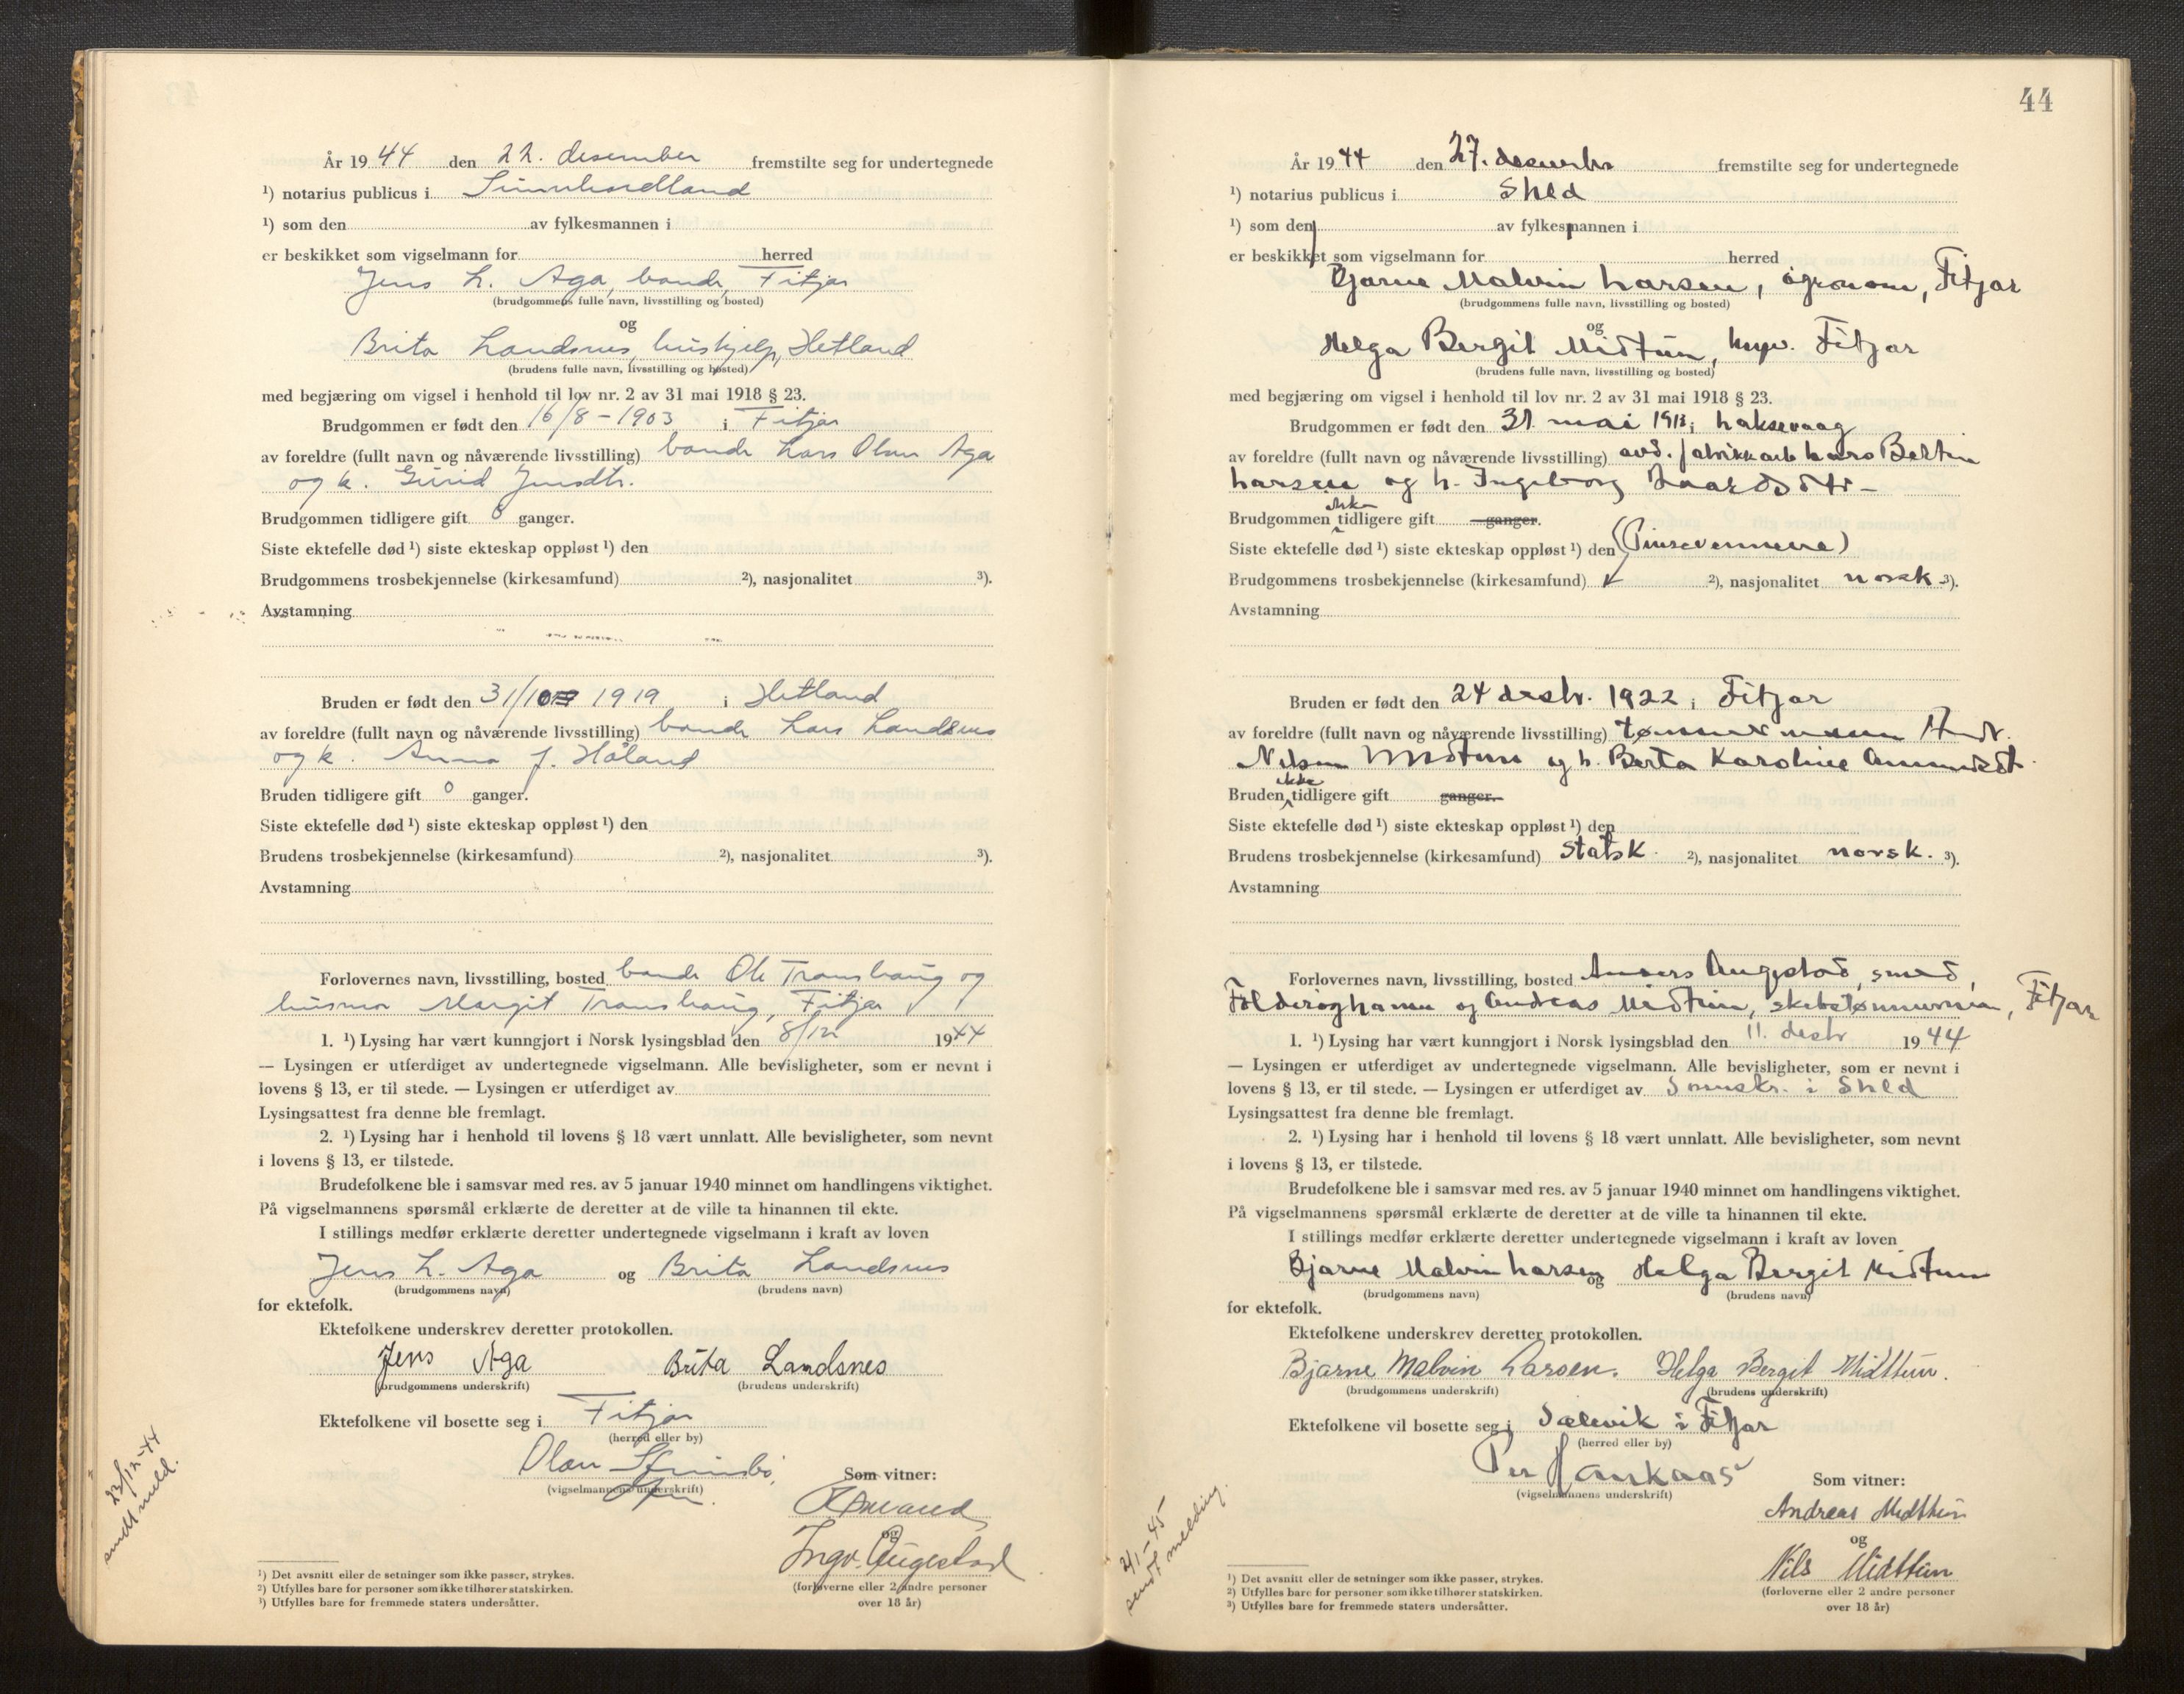 År 1944 den 22. desember fremstilte seg for undertegnede
¹) notarius publicus i Sunnhordland
¹) som den av fylkesmannen i
er beskikket som vigselmann for herred
Jens L. Aga, bonde, Fitjar
(brudgommens fulle navn, livsstilling og bosted)
og
Brita Landsnes, hushjelp, Hetland
(brudens fulle navn, livsstilling og bosted)
med begjæring om vigsel i henhold til lov nr. 2 av 31 mai 1918 § 23.
Brudgommen er født den 16/8-1903 i Fitjar
av foreldre (fullt navn og nåværende livsstilling) bonde Lars Olsen Aga
og k. Gurid Jensdtr.
Brudgommen tidligere gift 0 ganger.
Siste ektefelle død ¹) siste ekteskap oppløst ¹) den
Brudgommens trosbekjennelse (kirkesamfund) ²), nasjonalitet ³).
Avstamning
Bruden er født den 31/10 1919 i Hetland
av foreldre (fullt navn og nåværende livsstilling) bonde Lars Landsnes
og k. Anna J. Håland
Bruden tidligere gift 0 ganger.
Siste ektefelle død ¹) siste ekteskap oppløst ¹) den
Brudens trosbekjennelse (kirkesamfund) ²), nasjonalitet ³).
Avstamning
Forlovernes navn, livsstilling, bosted bonde Ole Transhaug og
husmor Margit Transhaug, Fitjar
1. ¹) Lysing har vært kunngjort i Norsk lysingsblad den 8/12 1944
— Lysingen er utferdiget av undertegnede vigselmann. Alle bevisligheter, som er nevnt i
lovens § 13, er til stede. — Lysingen er utferdiget av
Lysingsattest fra denne ble fremlagt.
2. ¹) Lysing har i henhold til lovens § 18 vært unnlatt. Alle bevisligheter, som nevnt
i lovens § 13, er tilstede.
Brudefolkene ble i samsvar med res. av 5 januar 1940 minnet om handlingens viktighet.
På vigselmannens spørsmål erklærte de deretter at de ville ta hinannen til ekte.
I stillings medfør erklærte deretter undertegnede vigselmann i kraft av loven
Jens L. Aga og Brita Landsnes
(brudgommens navn) (brudens navn)
for ektefolk.
Ektefolkene underskrev deretter protokollen.
Jens Aga Brita Landsnes
(brudgommens underskrift) (brudens underskrift)
Ektefolkene vil bosette seg i Fitjar
(herred eller by)
Olav
(vigselmannens underskrift)
Som vitner:
og
Ingv. Augestad
(forloverne eller 2 andre personer
over 18 år)
23/12-44
sendt meld.
¹) Det avsnitt eller de setninger som ikke passer, strykes.
²) Utfylles bare for personer som ikke tilhører statskirken.
³) Utfylles bare for fremmede staters undersåtter.
44
År 1944 den 27. desember fremstilte seg for undertegnede
¹) notarius publicus i Shld
¹) som den av fylkesmannen i
er beskikket som vigselmann for herred
Bjarne Malvin Larsen, agronom, Fitjar
(brudgommens fulle navn, livsstilling og bosted)
og
Helga Bergit Midttun, Fitjar
(brudens fulle navn, livsstilling og bosted)
med begjæring om vigsel i henhold til lov nr. 2 av 31 mai 1918 § 23.
Brudgommen er født den 31 mai 1913 i Laksevaag
av foreldre (fullt navn og nåværende livsstilling) avd. fabrikkarb Lars Bertin
Larsen og h. Ingeborg
Brudgommen ikke tidligere gift ganger.
Siste ektefelle død ¹) siste ekteskap oppløst ¹) den (Pinsevennene)
Brudgommens trosbekjennelse (kirkesamfund) ²), nasjonalitet norsk ³).
Avstamning
Bruden er født den 24 desbr. 1922 i Fitjar
av foreldre (fullt navn og nåværende livsstilling) tømmermann Andr.
Nelsen Midttun og h. Berta Karoline Amundsdt.
Bruden ikke tidligere gift ganger.
Siste ektefelle død ¹) siste ekteskap oppløst ¹) den
Brudens trosbekjennelse (kirkesamfund) statsk. ²), nasjonalitet norsk. ³).
Avstamning
Forlovernes navn, livsstilling, bosted Anders Augestad, smed,
Folderøyhamn og Andreas Midttun, skibstømmermann, Fitjar
1. ¹) Lysing har vært kunngjort i Norsk lysingsblad den 11. desbr 1944
— Lysingen er utferdiget av undertegnede vigselmann. Alle bevisligheter, som er nevnt i
lovens § 13, er til stede. — Lysingen er utferdiget av Sorenskr. i Shld
Lysingsattest fra denne ble fremlagt.
2. ¹) Lysing har i henhold til lovens § 18 vært unnlatt. Alle bevisligheter, som nevnt
i lovens § 13, er tilstede.
Brudefolkene ble i samsvar med res. av 5 januar 1940 minnet om handlingens viktighet.
På vigselmannens spørsmål erklærte de deretter at de ville ta hinannen til ekte.
I stillings medfør erklærte deretter undertegnede vigselmann i kraft av loven
Bjarne Malvin Larsen og Helga Bergit Midttun
(brudgommens navn) (brudens navn)
for ektefolk.
Ektefolkene underskrev deretter protokollen.
Bjarne Malvin Larsen. Helga Bergit Midttun.
(brudgommens underskrift) (brudens underskrift)
Ektefolkene vil bosette seg i Sælevik i Fitjar
(herred eller by)
Per Haukaas
(vigselmannens underskrift)
Som vitner:
Andreas Midttun
og
Nils Midttun
(forloverne eller 2 andre personer
over 18 år)
2/1-45
sendt melding.
¹) Det avsnitt eller de setninger som ikke passer, strykes.
²) Utfylles bare for personer som ikke tilhører statskirken.
³) Utfylles bare for fremmede staters undersåtter.